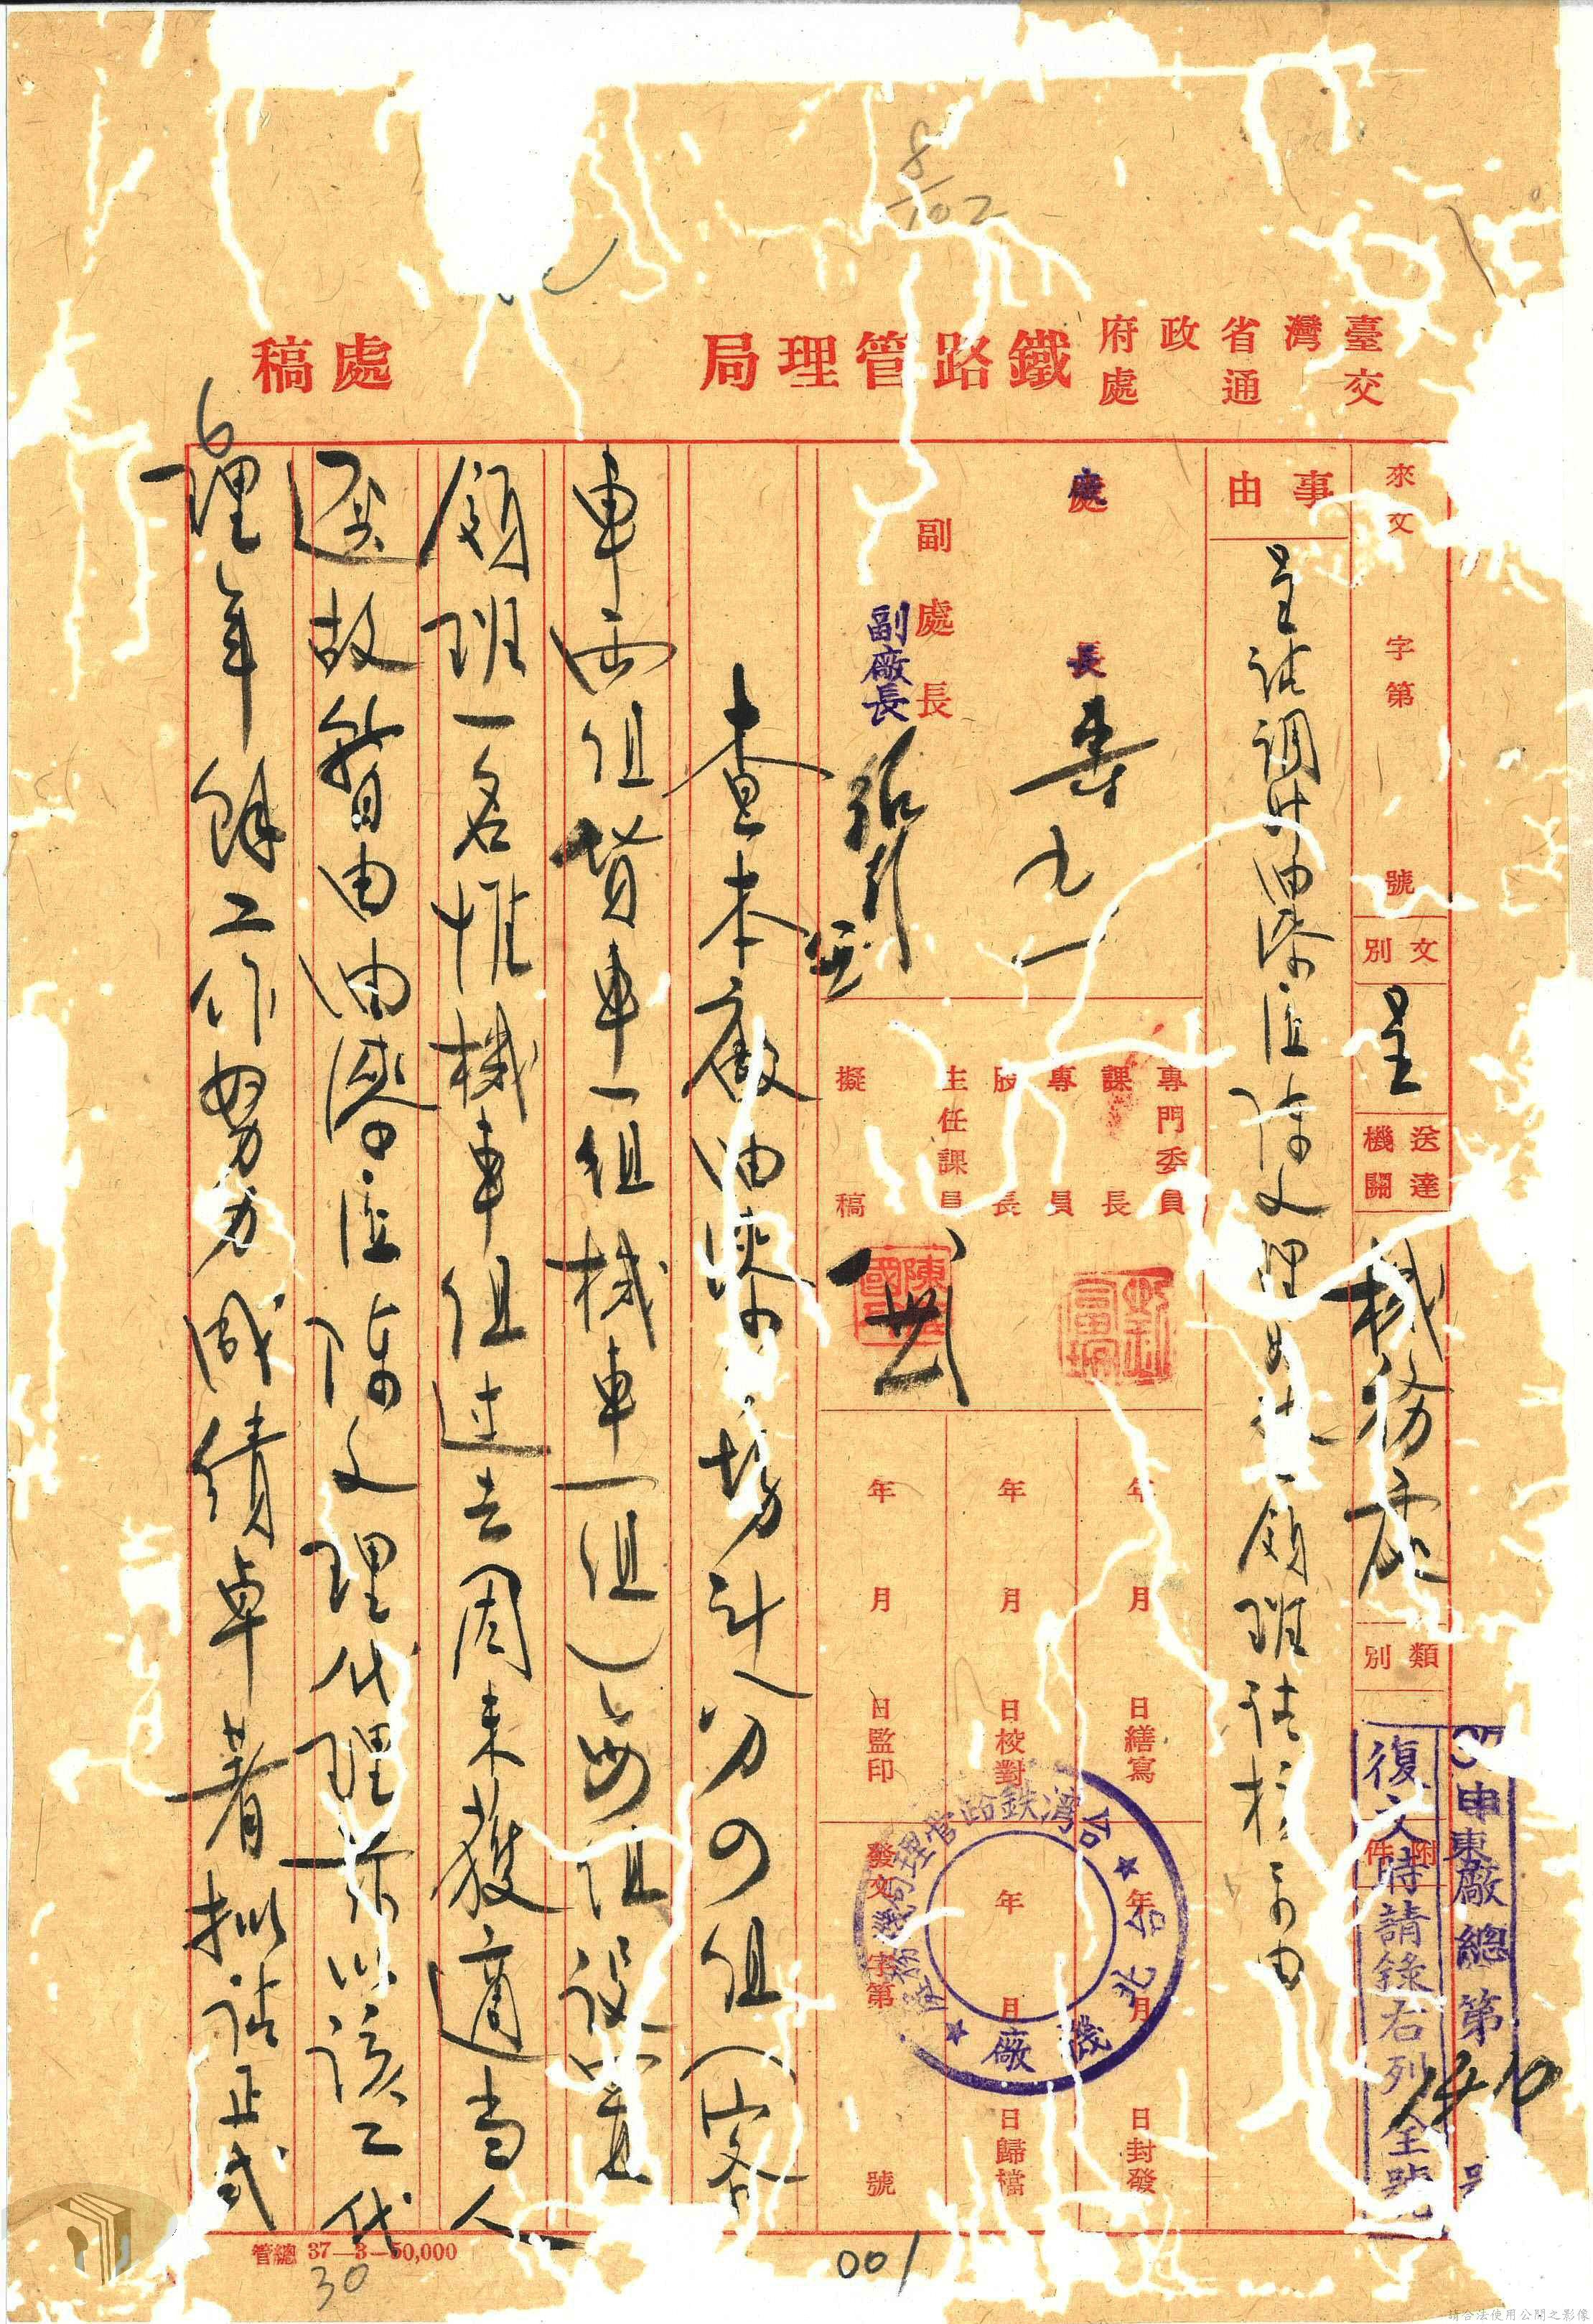 8/102
臺灣省政府交通處鐵路管理局
處稿
來文 字第 號
文別 呈
送達機關 機務處
類別
附件
37申東廠總第1410號
復文時請錄右列全號
事由
呈請調升油漆匠陳文理為該領班請核示由
處長
副處長
副廠長
專門委員
課長
專員
股長
主任課員
擬稿
年 月 日繕寫
年 月 日校對
年 月 日監印
年 月 日封發
年 月 日歸檔
發文 字第 號
台灣鉄路管理局機務處
台北機廠
查本廠油漆場計分四組(客
車兩組貨車一組機車一組)每組設置
領班一名惟機車組過去因未獲適当人
選故暫由油漆匠陳文理代理茲以該工代
理年餘工作努力成績卓著擬請正式
管總 37-3-50,000
30
001
請合法使用公開之影像